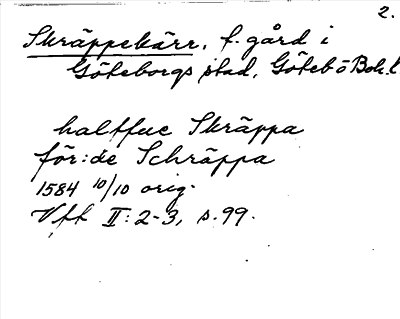 2.
Skräppekärr, f. gård i
Göteborgs stad, Göteb o Boh. l
halffue Skräppa
för:de Schräppa
1584 10/10 orig.
Vfk II: 2-3, s. 99.